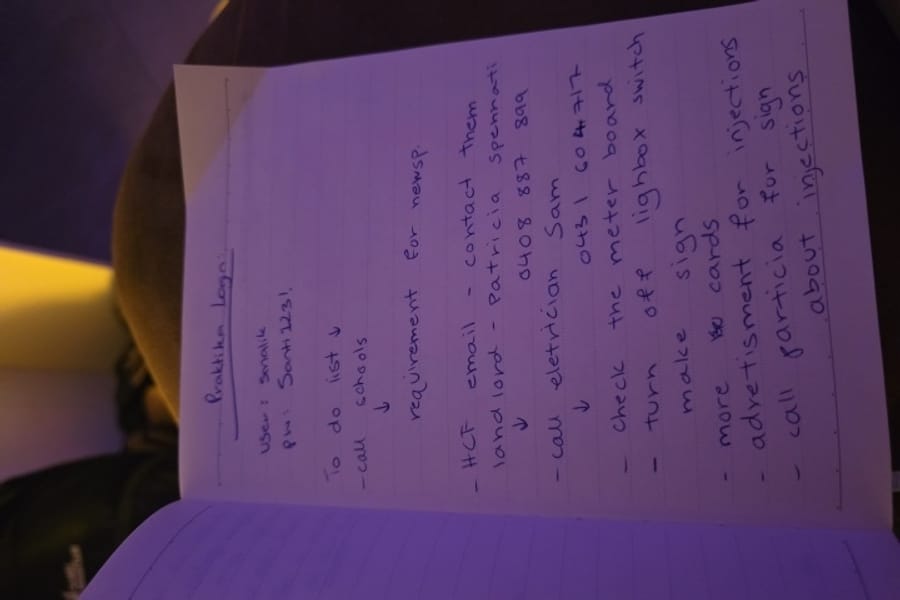 Praktika Login:
user: smalik
pw: Santi2231.
To do list ↓
- call schools
↓
requirement for newsp.
- HCF email - contact them
landlord - patricia spennati
↓ 0408 887 899
- call eletrician Sam
↓ 0431 604 717
- check the meter board
- turn off lighbox switch
make sign
- more cards
- adretisment for injections
- call particia for sign
about injections